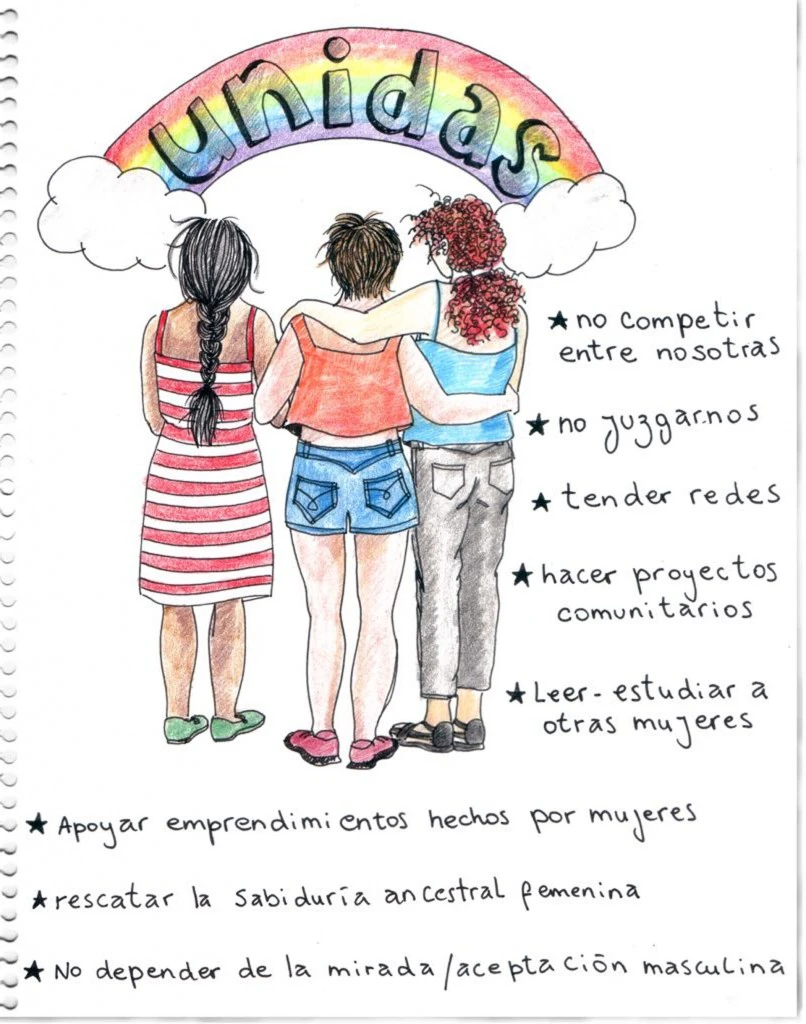 unidas
★ no competir
entre nosotras
★ no juzgarnos
★ tender redes
★ hacer proyectos
comunitarios
★ Leer - estudiar a
otras mujeres
★ Apoyar emprendimientos hechos por mujeres
★ rescatar la sabiduría ancestral femenina
★ No depender de la mirada/aceptación masculina